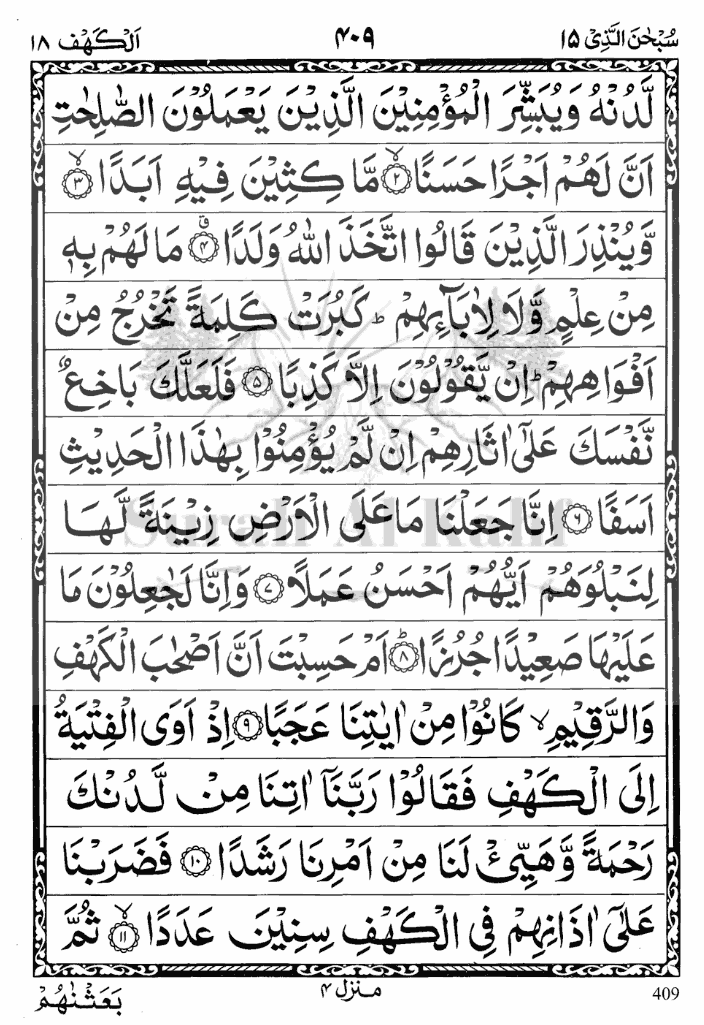 سُبْحٰنَ الَّذِیْۤ ١٥
۴۰۹
اَلْكَهْف ١٨
لَّدُنْهُ وَیُبَشِّرَ الْمُؤْمِنِیْنَ الَّذِیْنَ یَعْمَلُوْنَ الصّٰلِحٰتِ
اَنَّ لَهُمْ اَجْرًا حَسَنًا ۙ﴿٢﴾ مَّا كِثِیْنَ فِیْهِ اَبَدًا ۙ﴿٣﴾
وَّیُنْذِرَ الَّذِیْنَ قَالُوا اتَّخَذَ اللّٰهُ وَلَدًا ۗ﴿۴﴾ مَا لَهُمْ بِهٖ
مِنْ عِلْمٍ وَّلَا لِاٰبَآئِهِمْ ؕ كَبُرَتْ كَلِمَةً تَخْرُجُ مِنْ
اَفْوَاهِهِمْ ؕ اِنْ یَّقُوْلُوْنَ اِلَّا كَذِبًا ﴿۵﴾ فَلَعَلَّكَ بَاخِعٌ
نَّفْسَكَ عَلٰۤی اٰثَارِهِمْ اِنْ لَّمْ یُؤْمِنُوْا بِهٰذَا الْحَدِیْثِ
اَسَفًا ﴿۶﴾ اِنَّا جَعَلْنَا مَا عَلَی الْاَرْضِ زِیْنَةً لَّهَا
لِنَبْلُوَهُمْ اَیُّهُمْ اَحْسَنُ عَمَلًا ﴿٧﴾ وَاِنَّا لَجٰعِلُوْنَ مَا
عَلَیْهَا صَعِیْدًا جُرُزًا ؕ﴿٨﴾ اَمْ حَسِبْتَ اَنَّ اَصْحٰبَ الْكَهْفِ
وَالرَّقِیْمِ ۙ كَانُوْا مِنْ اٰیٰتِنَا عَجَبًا ﴿٩﴾ اِذْ اَوَی الْفِتْیَةُ
اِلَی الْكَهْفِ فَقَالُوْا رَبَّنَاۤ اٰتِنَا مِنْ لَّدُنْكَ
رَحْمَةً وَّهَیِّئْ لَنَا مِنْ اَمْرِنَا رَشَدًا ﴿١٠﴾ فَضَرَبْنَا
عَلٰۤی اٰذَانِهِمْ فِی الْكَهْفِ سِنِیْنَ عَدَدًا ۙ﴿١١﴾ ثُمَّ
Surah Al Kahf
بَعَثْنٰهُمْ
منزل ۴
409